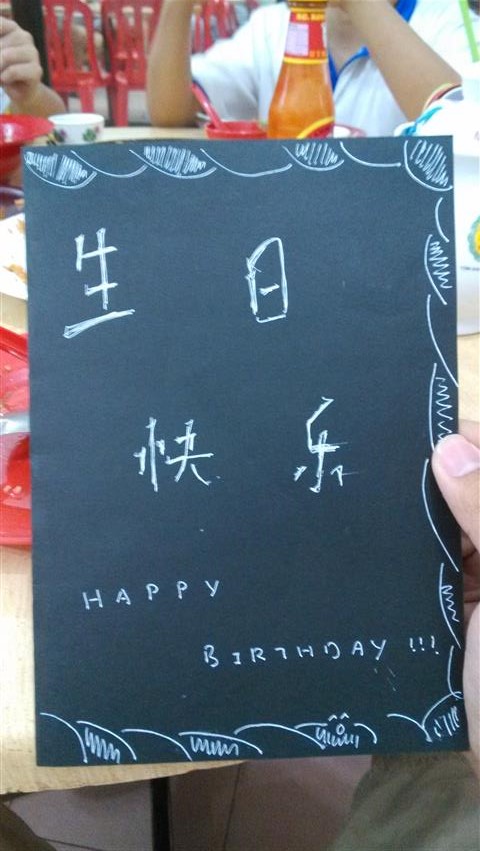 生 日
快 乐
HAPPY
BIRTHDAY !!!